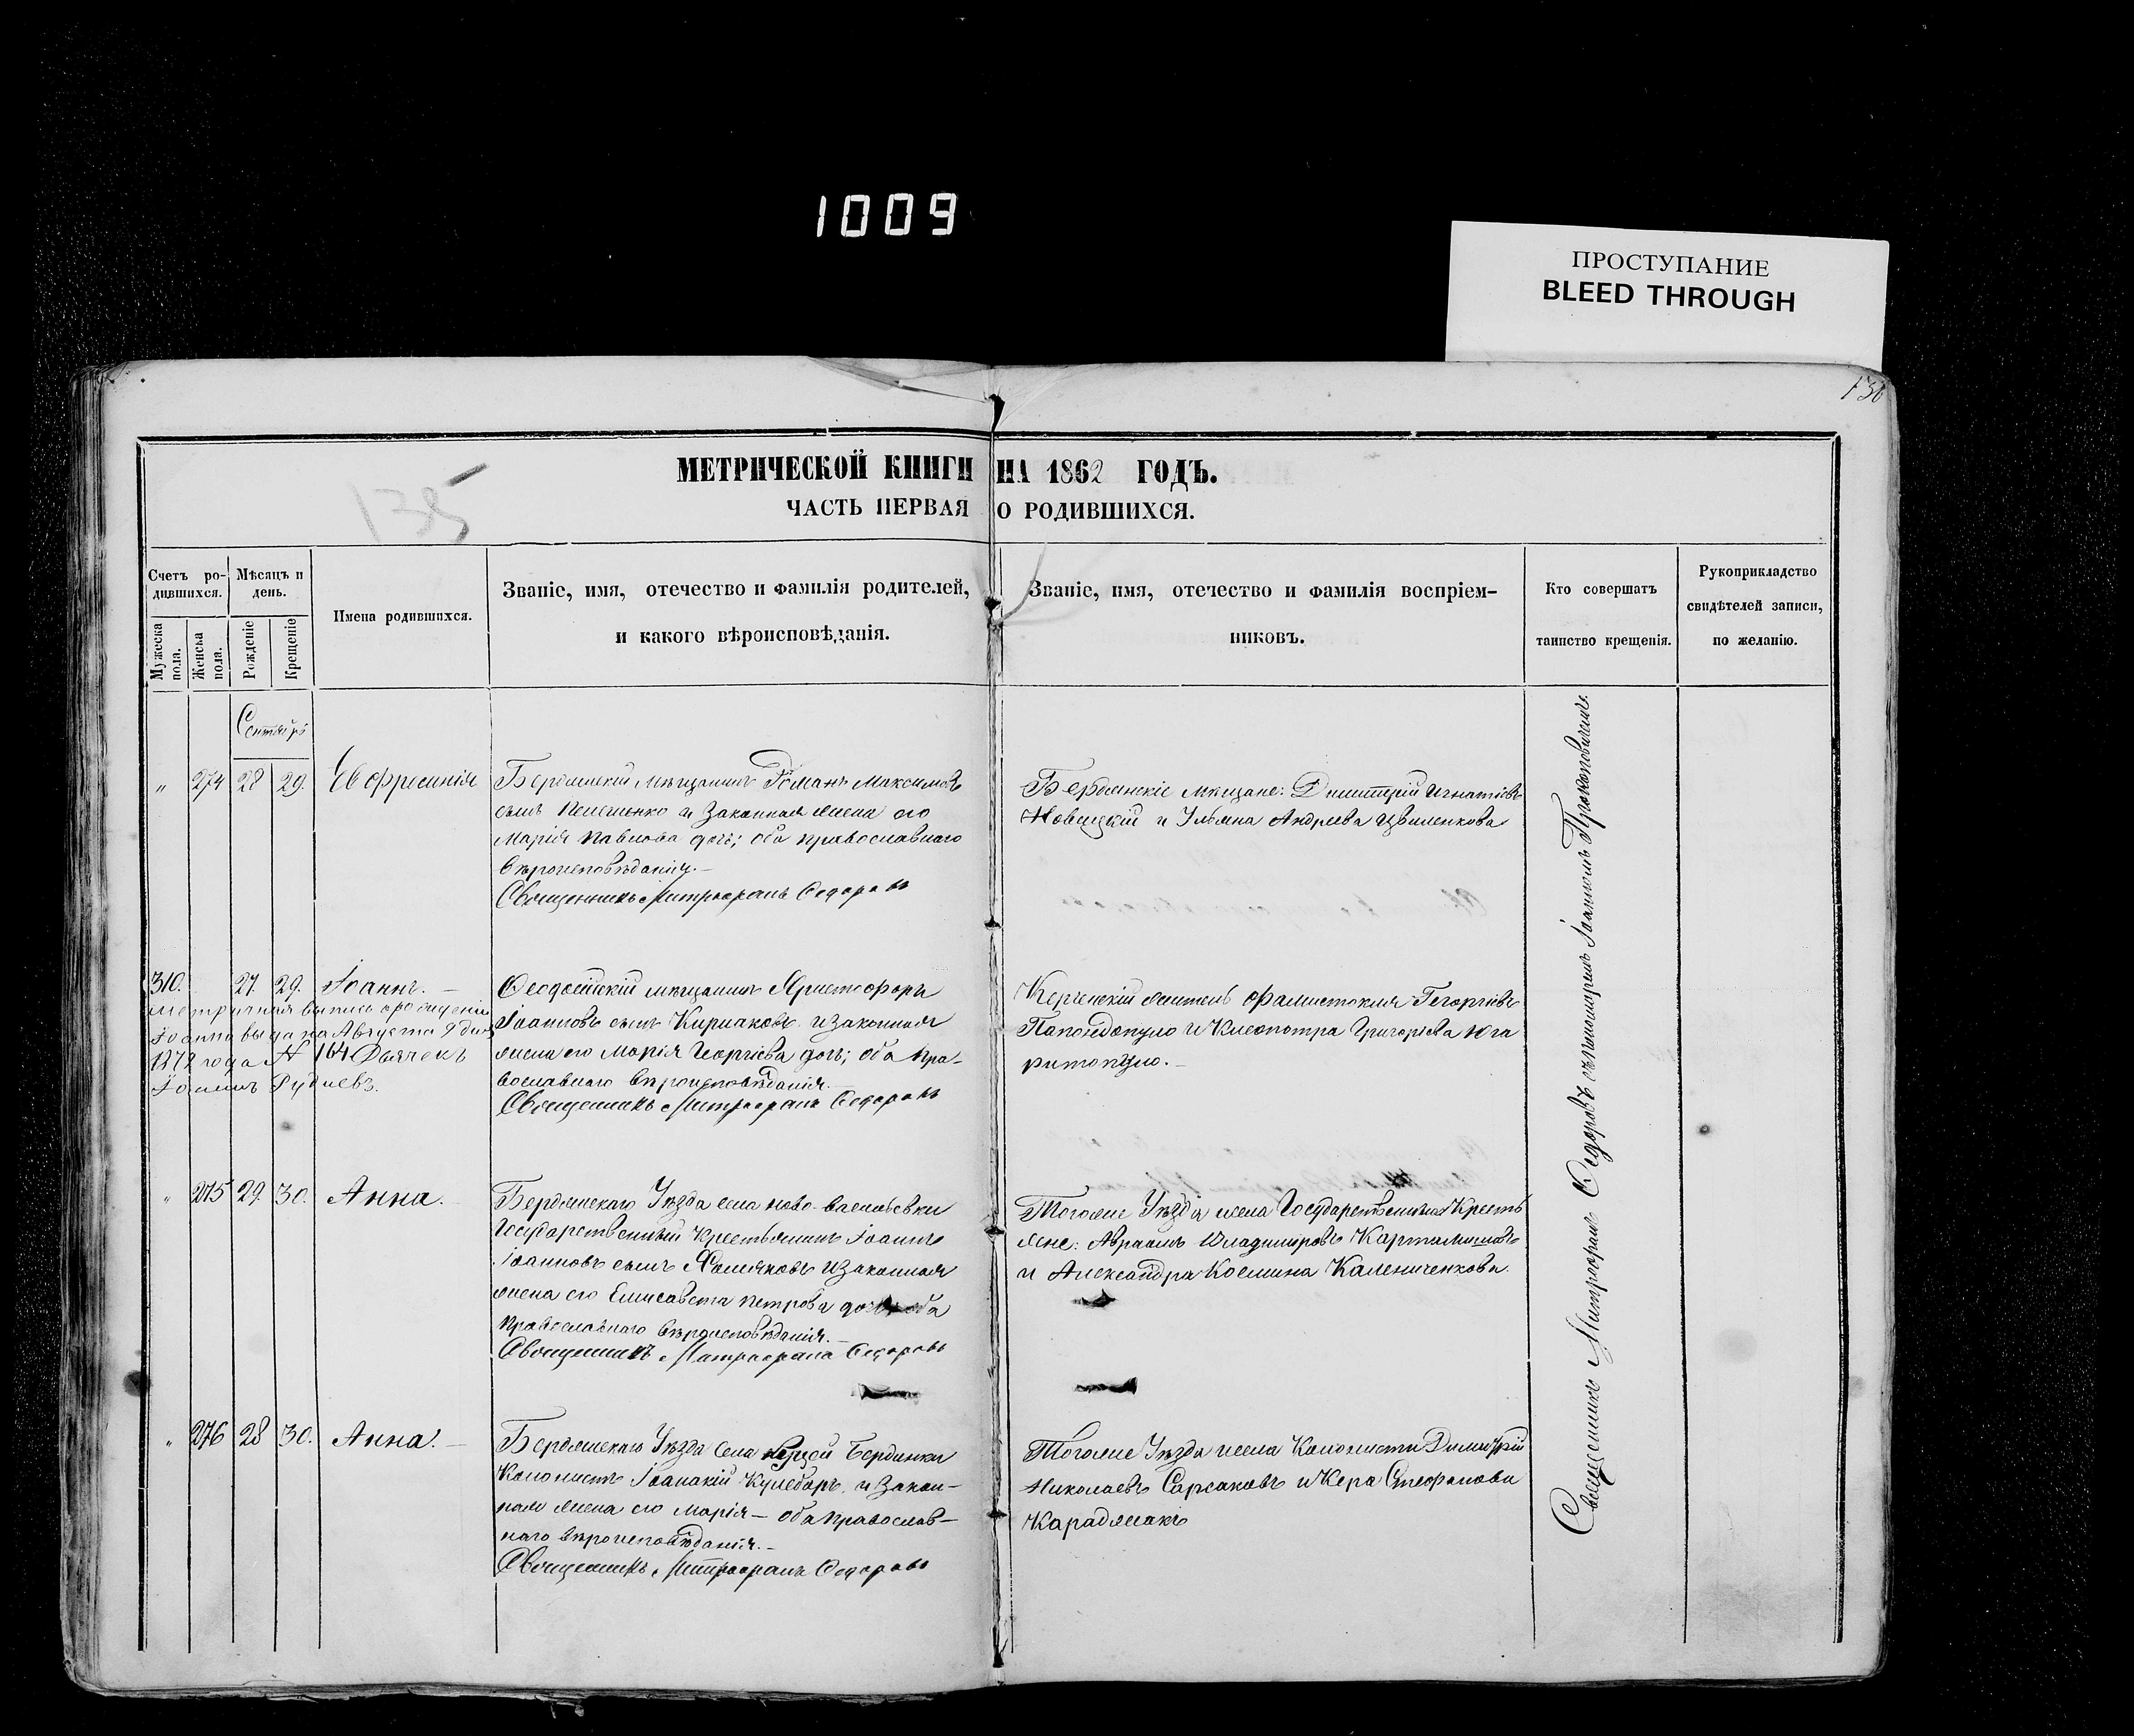 1009
ПРОСТУПАНИЕ
BLEED THROUGH
136
135
МЕТРИЧЕСКОЙ КНИГИ НА 1862 ГОДЪ.
ЧАСТЬ ПЕРВАЯ О РОДИВШИХСЯ.
Счетъ ро-
дившихся.
Мужеска
пола.
Женска
пола.
Мѣсяцъ и
день.
Рожденіе
Крещеніе
Имена родившихся.
Званіе, имя, отечество и фамилія родителей,
и какого вѣроисповѣданія.
Званіе, имя, отечество и фамилія воспріем-
никовъ.
Кто совершатъ
таинство крещенія.
Рукоприкладство
свидѣтелей записи,
по желанію.
Сентябрь
" 274 28 29. Евфросинія
Бердянскій мѣщанинъ Романъ Максимовъ
сынъ и законная жена его
Марія Павлова дочь; оба православнаго
вѣроисповѣданія.—
Священникъ Митрофанъ Сѣдоровъ
Бердянскіе мѣщане: Димитрій Игнатіевъ
Новицкій и Ульяна Андреева Цвиленкова
310. 27. 29. Іоаннъ.—
Метричная выпись о рожденіи
Іоанна выдана Августа 9 дня
1872 года № 164 Дьячекъ
Іоаннъ Рудневъ.
Ѳеодосійскій мѣщанинъ Христофоръ
Іоанновъ сынъ Киріаковъ и законная
жена его Марія Георгіева дочь; оба пра-
вославнаго вѣроисповѣданія.—
Священникъ Митрофанъ Сѣдоровъ
Керченскій житель Фемистоклія Георгіевъ
Папондопуло и Клеопатра Григоріева Юга
ритопуло.—
" 275 29. 30. Анна.—
Бердянскаго Уѣзда села Ново-Васильевки
Государственный крестьянинъ Іоаннъ
Іоанновъ сынъ Хомяковъ и законная
жена его Елисавета Петрова дочь оба
православнаго вѣроисповѣданія.—
Священникъ Митрофанъ Сѣдоровъ
Тогоже Уѣзда и села Государственные Кресть
яне: Авраамъ Владиміровъ
и Александра Космина Калениченкова.
" 276 28 30. Анна.—
Бердянскаго Уѣзда села Куцой Бердянки
Колонистъ Іоанакій и закон-
ная жена его Марія— оба православ-
наго вѣроисповѣданія.—
Священникъ Митрофанъ Сѣдоровъ
Тогоже Уѣзда и села Колонисты Димитрій
Николаевъ Сарсаковъ и Кера Стефанова
Караджакъ
Священникъ Митрофанъ Сѣдоровъ съ пономаремъ Іоанномъ Прокоповичемъ.